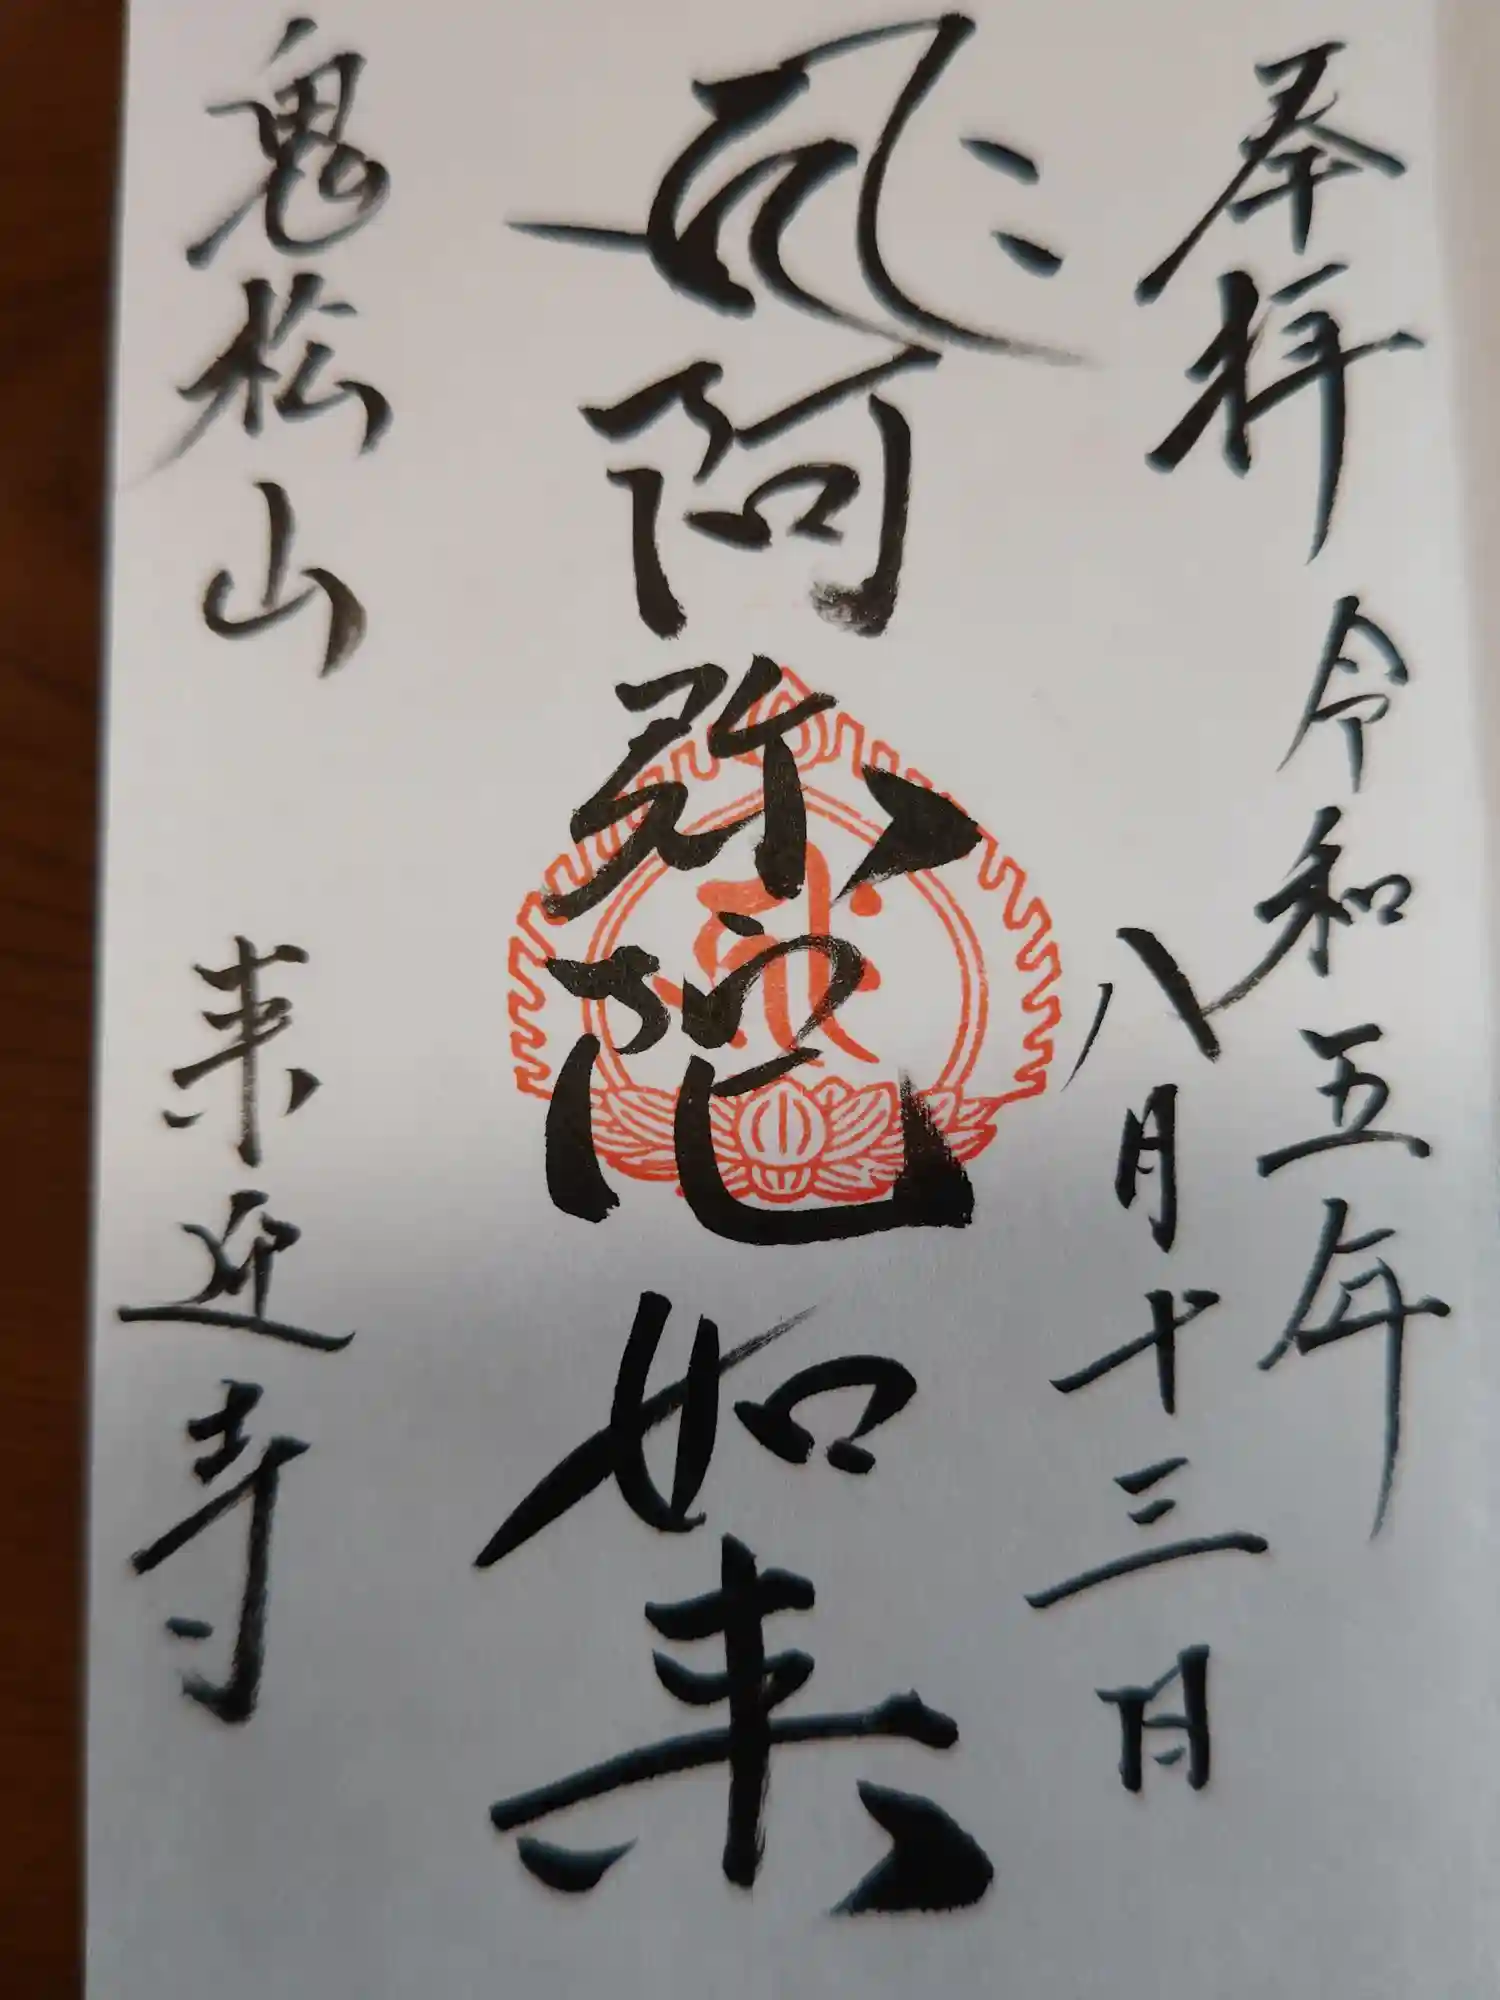 奉拝
令和五年
八月十三日
𑖮𑖿𑖨𑖱𑖾
阿弥陀如来
鬼松山
来迎寺